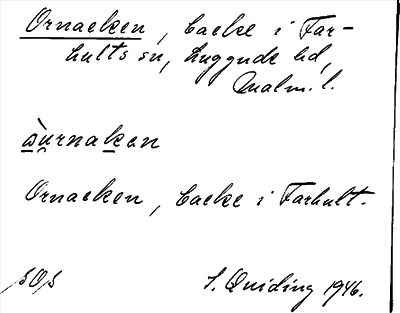 Ornaeken, backe i Far-
hults sn, Luggude hd,
Malm. l.
sùrnakən
Ornaeken, backe i Farhult.
SOS S. Quiding 1946.